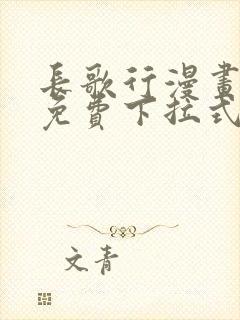 長歌行漫畫
免費下拉式
文青